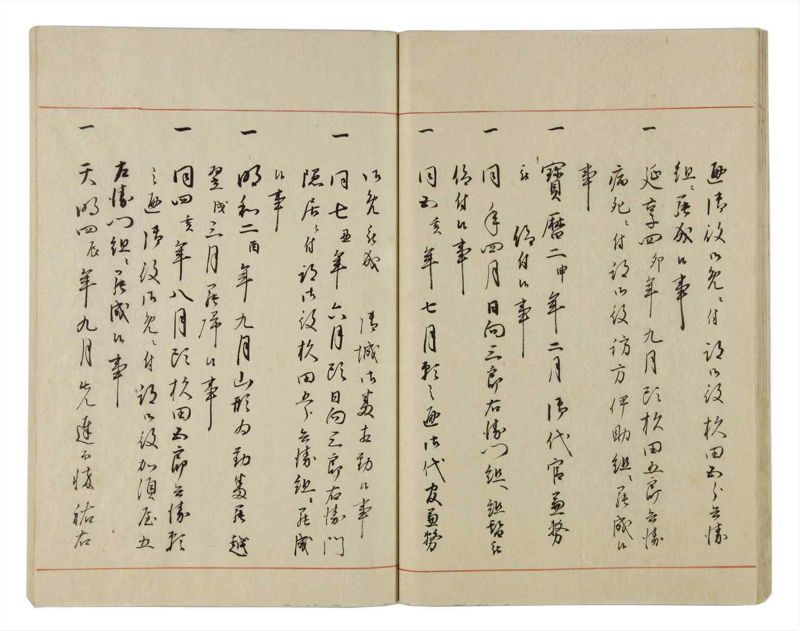 通御役御免ニ付跡御役杉田五郎兵衛
組ニ罷成候事
一 延享四卯年九月頭杉田五郎兵衛
病死ニ付跡御役諏方伊助組ニ罷成候
事
一 寶暦二申年二月御代官兼務
被 仰付候事
一 同年四月日向三郎右衛門組
仰付候事
一 同五亥年七月願之通御代官兼務
御免被成 御城御番相勤候事
一 同七丑年六月頭日向三郎右衛門
隠居ニ付跡御役杉田五郎兵衛組ニ罷成
候事
一 明和二酉年九月山形為勤番罷越
翌戌三月罷帰候事
一 同四亥年八月頭杉田五郎兵衛願
之通御役御免ニ付跡御役加須屋五
右衛門組ニ罷成候事
一 天明四辰年九月先達而悴祐右